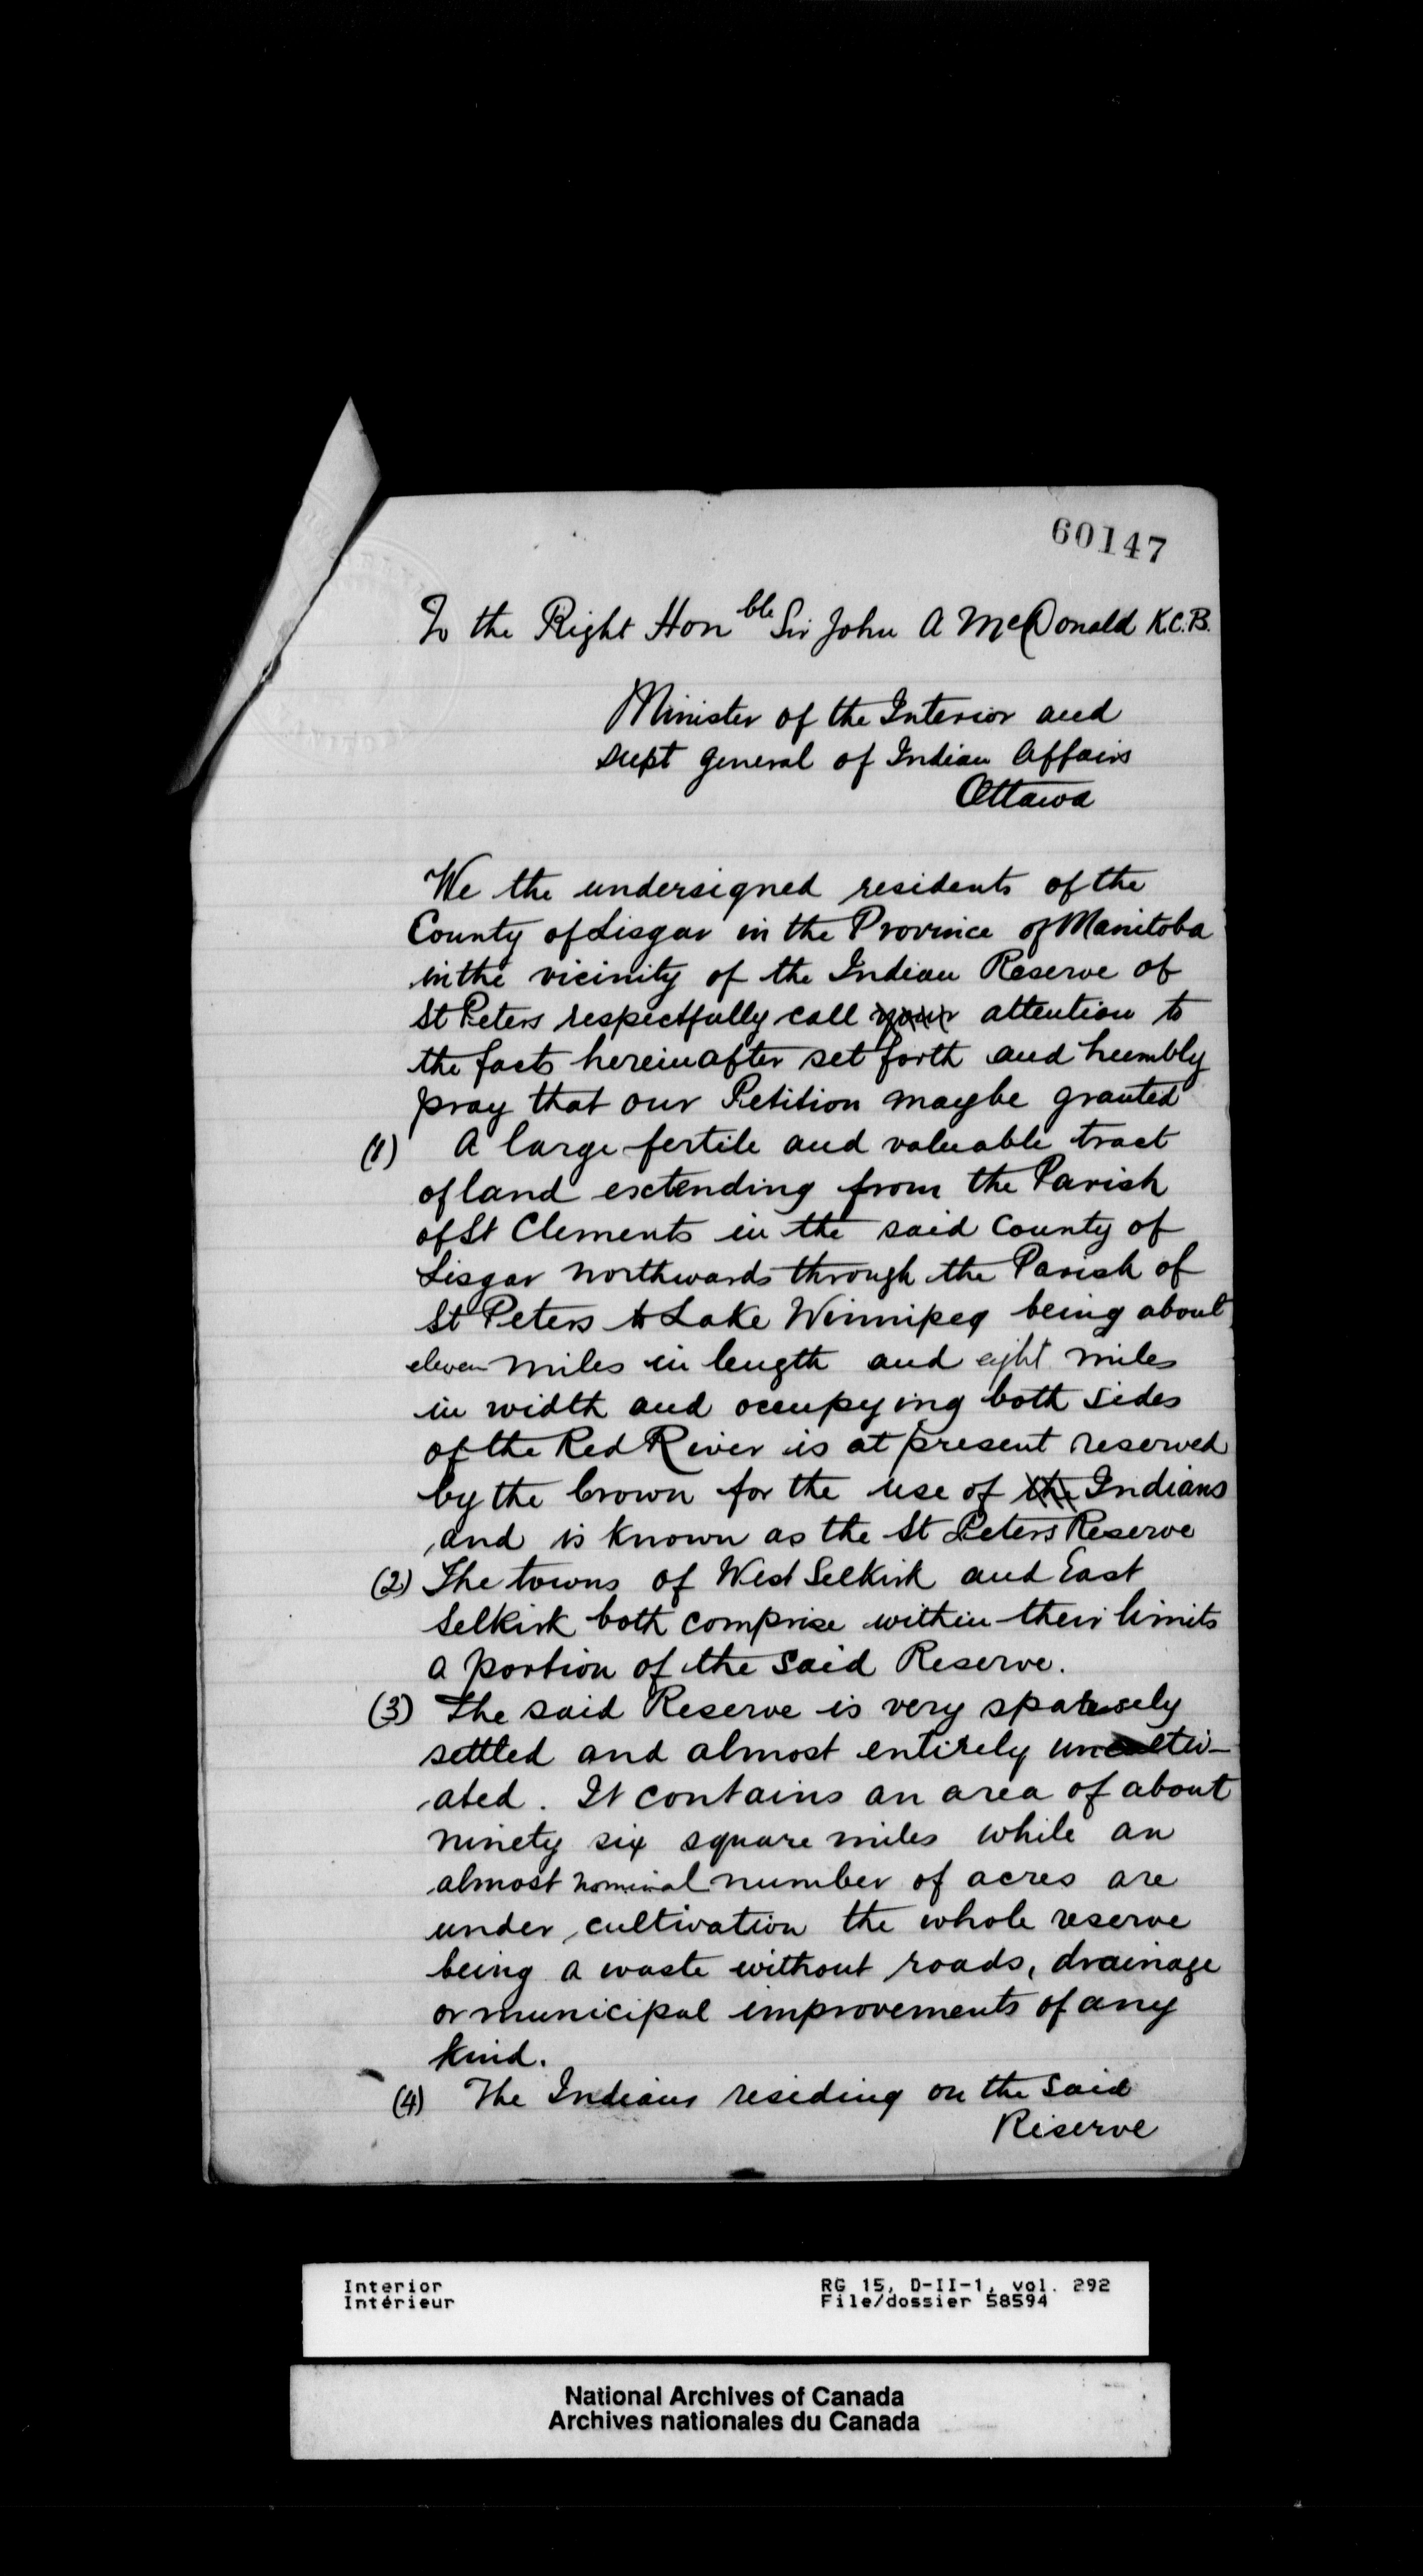 60147
To the Right Honble Sir John A McDonald K.C.B.
Minister of the Interior and
Supt General of Indian Affairs
Ottawa
We the undersigned residents of the
County of Lisgar in the Province of Manitoba
in the vicinity of the Indian Reserve of
St Peters respectfully call your attention to
the facts hereinafter set forth and humbly
pray that our Petition maybe granted
(1) A large fertile and valuable tract
of land extending from the Parish
of St Clements in the said County of
Lisgar northwards through the Parish of
St Peters to Lake Winnipeg being about
eleven miles in length and eight miles
in width and occupying both sides
of the Red River is at present reserved
by the Crown for the use of the Indians
and is known as the St Peters Reserve
(2) The towns of West Selkirk and East
Selkirk both comprise within their limits
a portion of the said Reserve.
(3) The said Reserve is very sparsely
settled and almost entirely uncultiv-
ated. It contains an area of about
ninety six square miles while an
almost nominal number of acres are
under cultivation the whole reserve
being a waste without roads, drainage
or municipal improvements of any
kind.
(4) The Indians residing on the said
Reserve
Interior
Intérieur
RG 15, D-II-1, vol. 292
File/dossier 58594
National Archives of Canada
Archives nationales du Canada